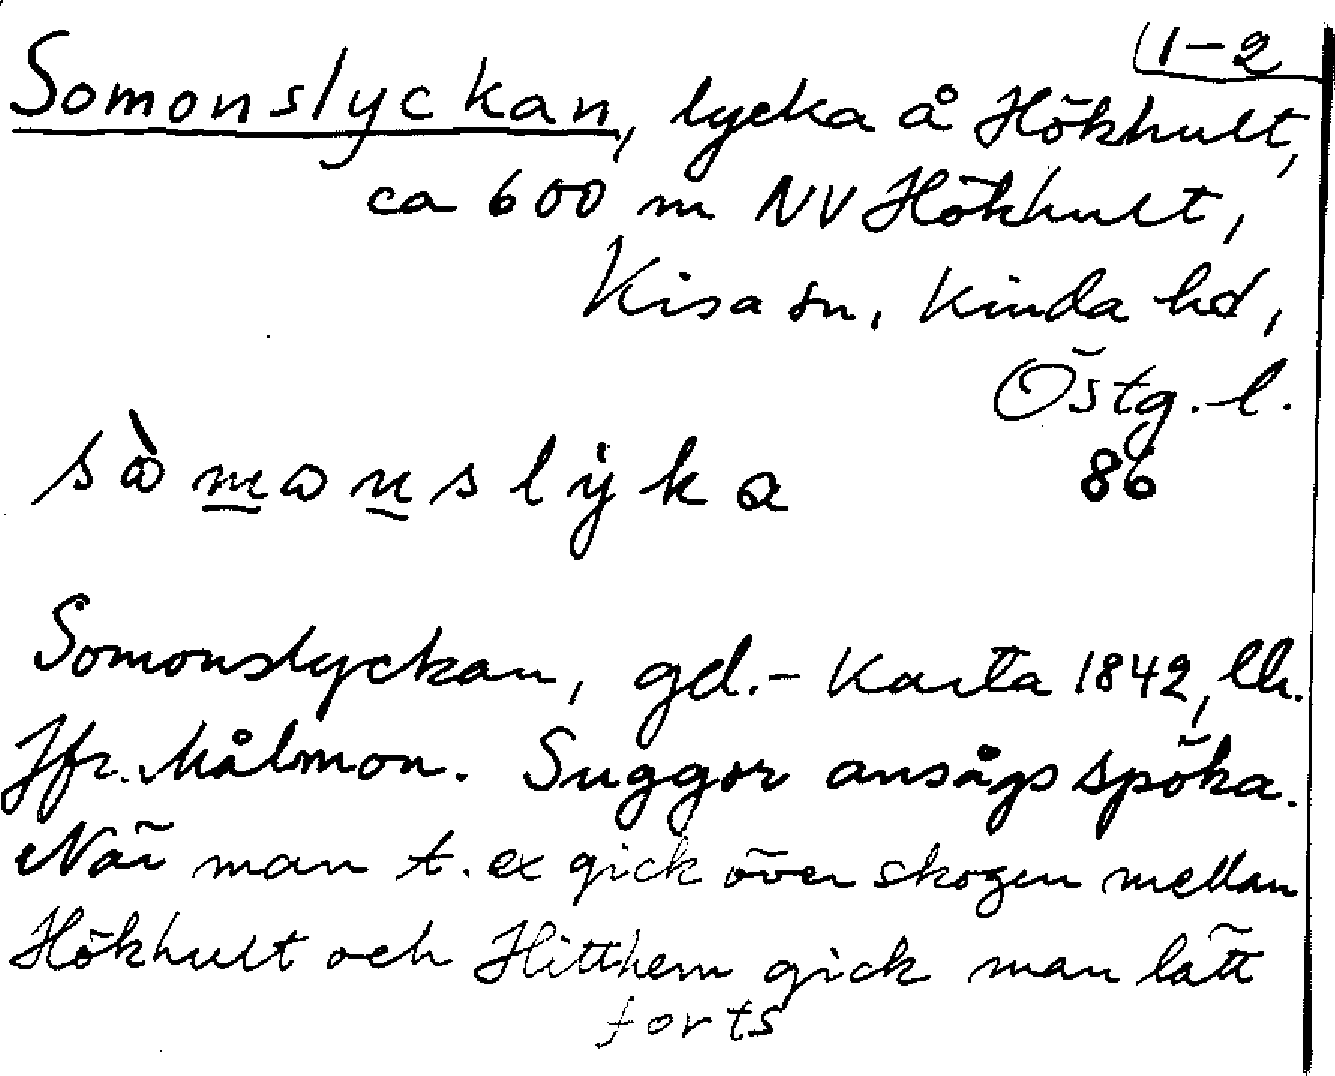 1-2
Somonslyckan, lycka å Hökhult,
ca 600 m NV Hökhult,
Kisa sn, Kinda hd,
Östg. l.
sòmonslyka 86
Somonslyckan, gd.- Karta 1842, llh.
Jfr. Målmon. Suggor ansågs spöka.
När man t. ex gick över skogen mellan
Hökhult och Hitthem gick man lätt
forts